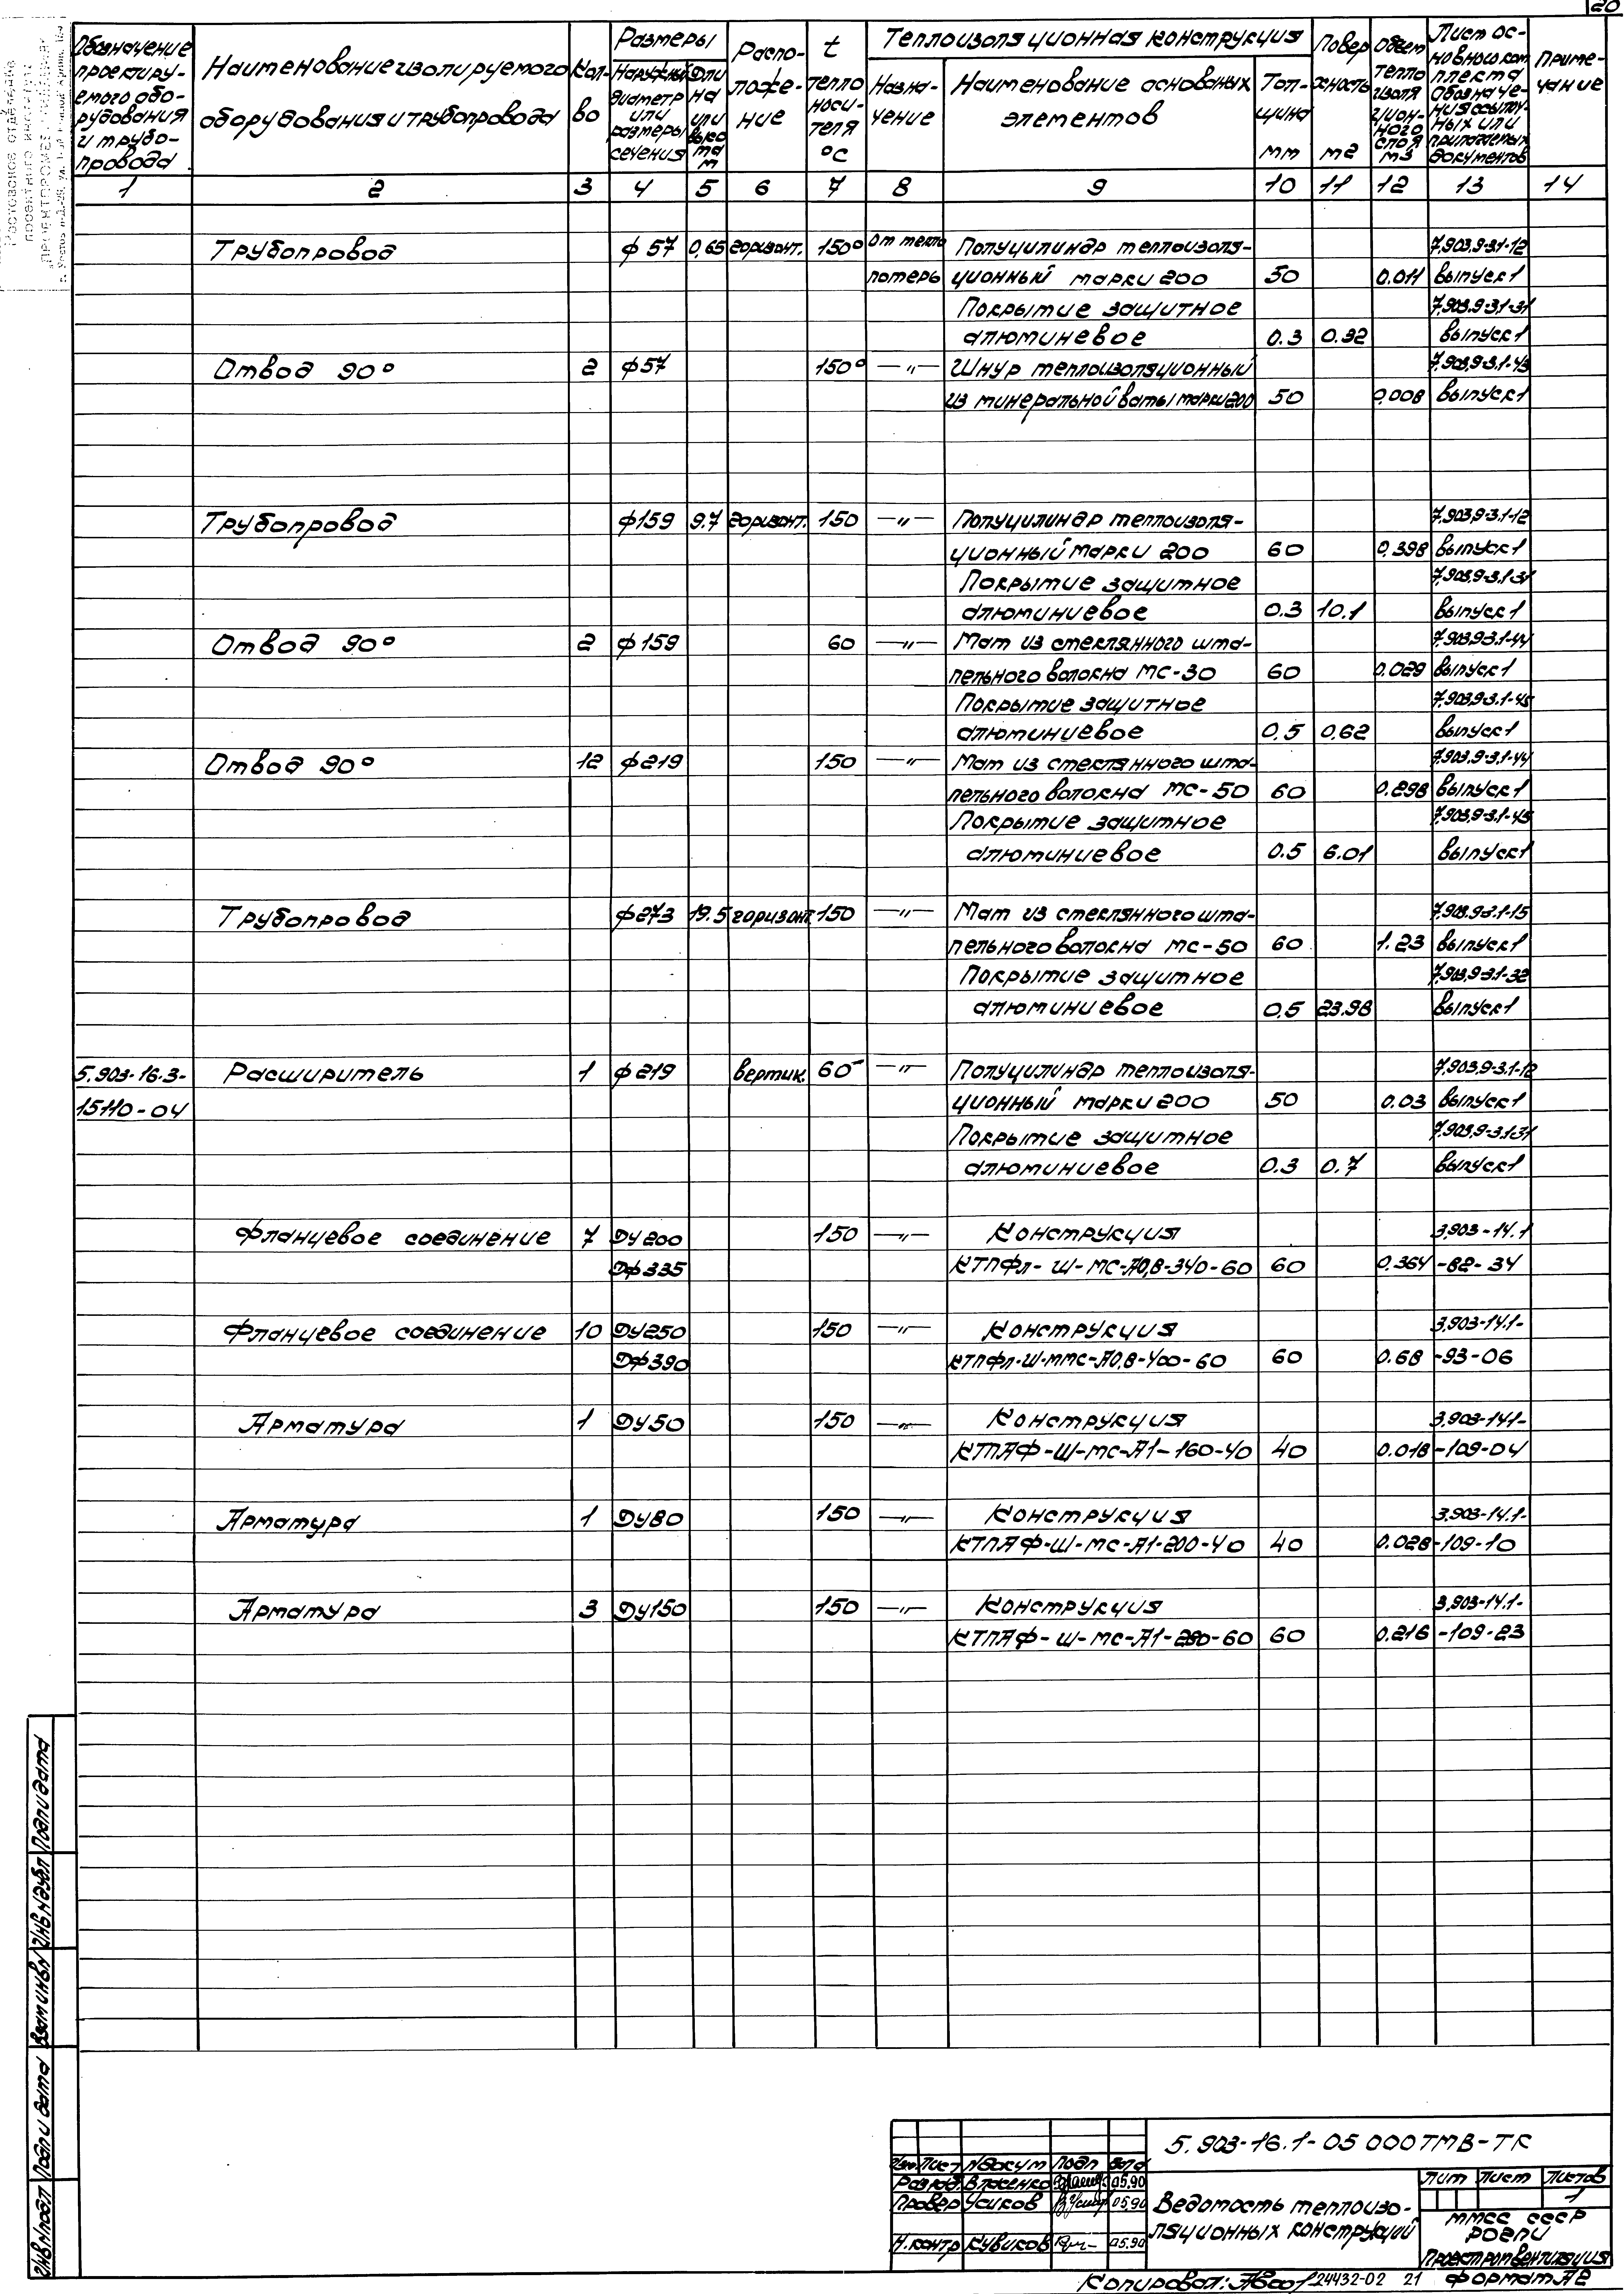 20
Обозначение проектиру- емого обо- рудования и трубо- провода
Наименование изолируемого оборудования и трубопровода
Кол- во
Размеры
Наружный диаметр или размеры сечения
Дли на или высо та м
Распо- ложе- ние
t тепло носи- теля °С
Теплоизоляционная конструкция
Назна- чение
Наименование основных элементов
Тол- щина мм
Повер хность м2
Объем тепло изоля цион- ного слоя м3
Лист ос- новного ком плекта Обозначе- ния ссылоч- ных или прилагаемых документов
Приме- чание
1 2 3 4 5 6 7 8 9 10 11 12 13 14
Трубопровод ф57 0,65 горизонт. 150° От тепло Полуцилиндр теплоизоля- 7.903.9-3.1-12
потерь ционный марки 200 50 0.011 выпуск 1
Покрытие защитное 7.903.9-3.1-31
алюминиевое 0.3 0.32 выпуск 1
Отвод 90° 2 ф57 150° —"— Шнур теплоизоляционный 7.903.9-3.1-43
из минеральной ваты марки 200 50 0,008 выпуск 1
Трубопровод ф159 9.7 горизонт. 150 —"— Полуцилиндр теплоизоля- 7.903.9-3.1-12
ционный марки 200 60 0.398 выпуск 1
Покрытие защитное 7.903.9-3.1-31
алюминиевое 0.3 10.1 выпуск 1
Отвод 90° 2 ф159 60 —"— Мат из стеклянного шта- 7.903.9-3.1-44
пельного волокна МС-30 60 0.029 выпуск 1
Покрытие защитное 7.903.9-3.1-45
алюминиевое 0,5 0,62 выпуск 1
Отвод 90° 12 ф219 150 —"— Мат из стеклянного шта- 7.903.9-3.1-44
пельного волокна МС-50 60 0.298 выпуск 1
Покрытие защитное 7.903.9-3.1-45
алюминиевое 0.5 6.01 выпуск 1
Трубопровод ф273 19.5 горизонт. 150 —"— Мат из стеклянного шта- 7.903.9-3.1-15
пельного волокна МС-50 60 1.23 выпуск 1
Покрытие защитное 7.903.9-3.1-32
алюминиевое 0,5 23.98 выпуск 1
5.903-16.3- Расширитель 1 ф219 вертик. 60 —"— Полуцилиндр теплоизоля- 7.903.9-3.1-12
15110-04 ционный марки 200 50 0.03 выпуск 1
Покрытие защитное 7.903.9-3.1-31
алюминиевое 0.3 0.7 выпуск 1
Фланцевое соединение 7 Ду200 150 —"— Конструкция 3.903-14.1
Дф335 КТПФл-Ш-МС-А0,8-340-60 60 0.364 -82-34
Фланцевое соединение 10 Ду250 150 —"— Конструкция 3.903-14.1-
Дф390 КТПФл-Ш-ММС-А0,8-400-60 60 0.68 -93-06
Арматура 1 Ду50 150 —"— Конструкция 3.903-14.1-
КТПАФ-Ш-МС-А1-160-40 40 0.018 -109-04
Арматура 1 Ду80 150 —"— Конструкция 3.903-14.1-
КТПАФ-Ш-МС-А1-200-40 40 0.028 -109-10
Арматура 3 Ду150 150 —"— Конструкция 3.903-14.1-
КТПАФ-Ш-МС-А1-280-60 60 0.216 -109-23
Подп и дата
Инв.№дубл
Взам инв№
Подп и дата
Инв№подл
5.903-16.1-05 000ТМВ-ТК
Изм Лист №докум Подп Дата
Разраб. Власенко 05.90
Провер Усиков 05.90
Н.контр Кувиков 05.90
Ведомость теплоизо- ляционных конструкций
Лит Лист Листов
1
ММСС СССР
РОГПИ
Проектпромвентиляция
Копировал: 24432-02 21 Формат А2